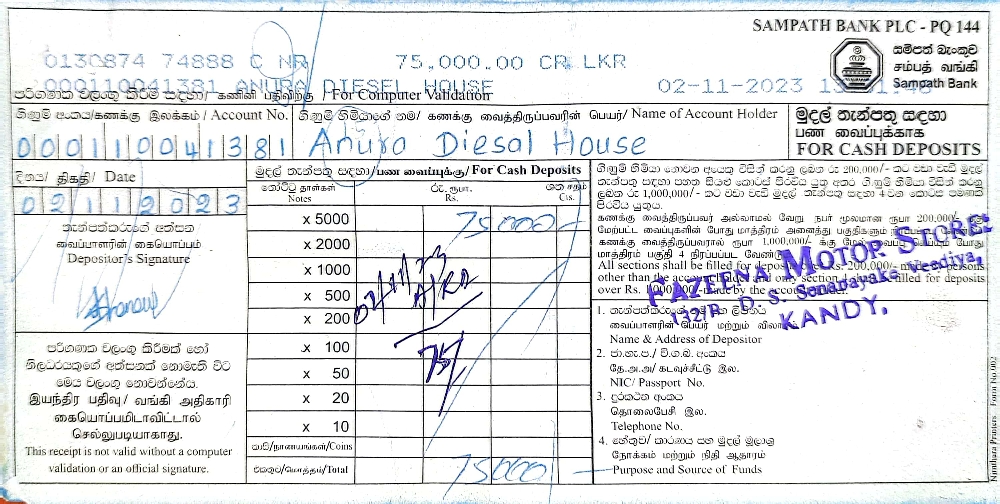 SAMPATH BANK PLC - PQ 144
සම්පත් බැංකුව
சம்பத் வங்கி
Sampath Bank
0130874 74888 C NR 75,000.00 CR LKR
000110041381 ANURA DIESEL HOUSE 02-11-2023
පරිගණක වලංගු කිරීම් සඳහා/ கணினி பதிவிற்கு / For Computer Validation
ගිණුම් අංකය/கணக்கு இலக்கம் / Account No.
ගිණුම් හිමියාගේ නම/ கணக்கு வைத்திருப்பவரின் பெயர்/ Name of Account Holder
000110041381 Anura Diesal House
මුදල් තැන්පතු සඳහා
பண வைப்புக்காக
FOR CASH DEPOSITS
දිනය/ திகதி/ Date
02112023
තැන්පත්කරුගේ අත්සන
வைப்பாளரின் கையொப்பம்
Depositor's Signature
පරිගණක වලංගු කිරීමක් හෝ
නිලධරයකුගේ අත්සනක් නොමැති විට
මෙය වලංගු නොවන්නේය.
இயந்திர பதிவு/ வங்கி அதிகாரி
கையொப்பமிடாவிட்டால்
செல்லுபடியாகாது.
This receipt is not valid without a computer
validation or an official signature.
මුදල් තැන්පතු සඳහා/பண வைப்புக்கு/ For Cash Deposits
නෝට්ටු தாள்கள்
Notes
රු. ரூபா.
Rs.
ශත சதம்
Cts.
x 5000 75000
x 2000
x 1000
x 500
x 200
x 100
x 50
x 20
x 10
කාසි/நாணயங்கள்/Coins
එකතුව/மொத்தம்/Total 75000
02/11/23
75/
ගිණුම් හිමියා නොවන අයෙකු විසින් කරනු ලබන රු 200,000/- කට වඩා වැඩි මුදල්
තැන්පතු සඳහා පහත සියළු කොටස් පිරවිය යුතු අතර ගිණුම් හිමියා විසින් කරනු
ලබන රු 1,000,000/- කට වඩා වැඩි මුදල් තැන්පතු සඳහා 4 වන කොටස පමණක්
පිරවිය යුතුය.
கணக்கு வைத்திருப்பவர் அல்லாமல் வேறு நபர் மூலமான ரூபா 200,000/-
மேற்பட்ட வைப்புகளின் போது மாத்திரம் அனைத்து பகுதிகளும்
வைத்திருப்பவரால் ரூபா 1,000,000/- க்கு
மாத்திரம் பகுதி 4 நிரப்பப்பட வேண்டும்
All sections shall be filled for deposits Rs. 200,000/- made by persons
other than the account holder and only section 4 shall be filled for deposits
over Rs. 1,000,000/- made by the account holder.
FAZEENA MOTOR STORES
132/B, D. S. Senanayake Veediya,
KANDY.
1. තැන්පත්කරුගේ නම සහ ලිපිනය
வைப்பாளரின் பெயர் மற்றும்
Name & Address of Depositor
2. ජා.හැ.ප./ වි.ග.බ. අංකය
தே.அ.அ/ கடவுச்சீட்டு இல.
NIC/ Passport No.
3. දුරකථන අංකය
தொலைபேசி இல.
Telephone No.
4. හේතුව/ කාරණය සහ මුදල් මූලාශ්‍ර
நோக்கம் மற்றும் நிதி ஆதாரம்
Purpose and Source of Funds
Nimhara Printers Form No.002